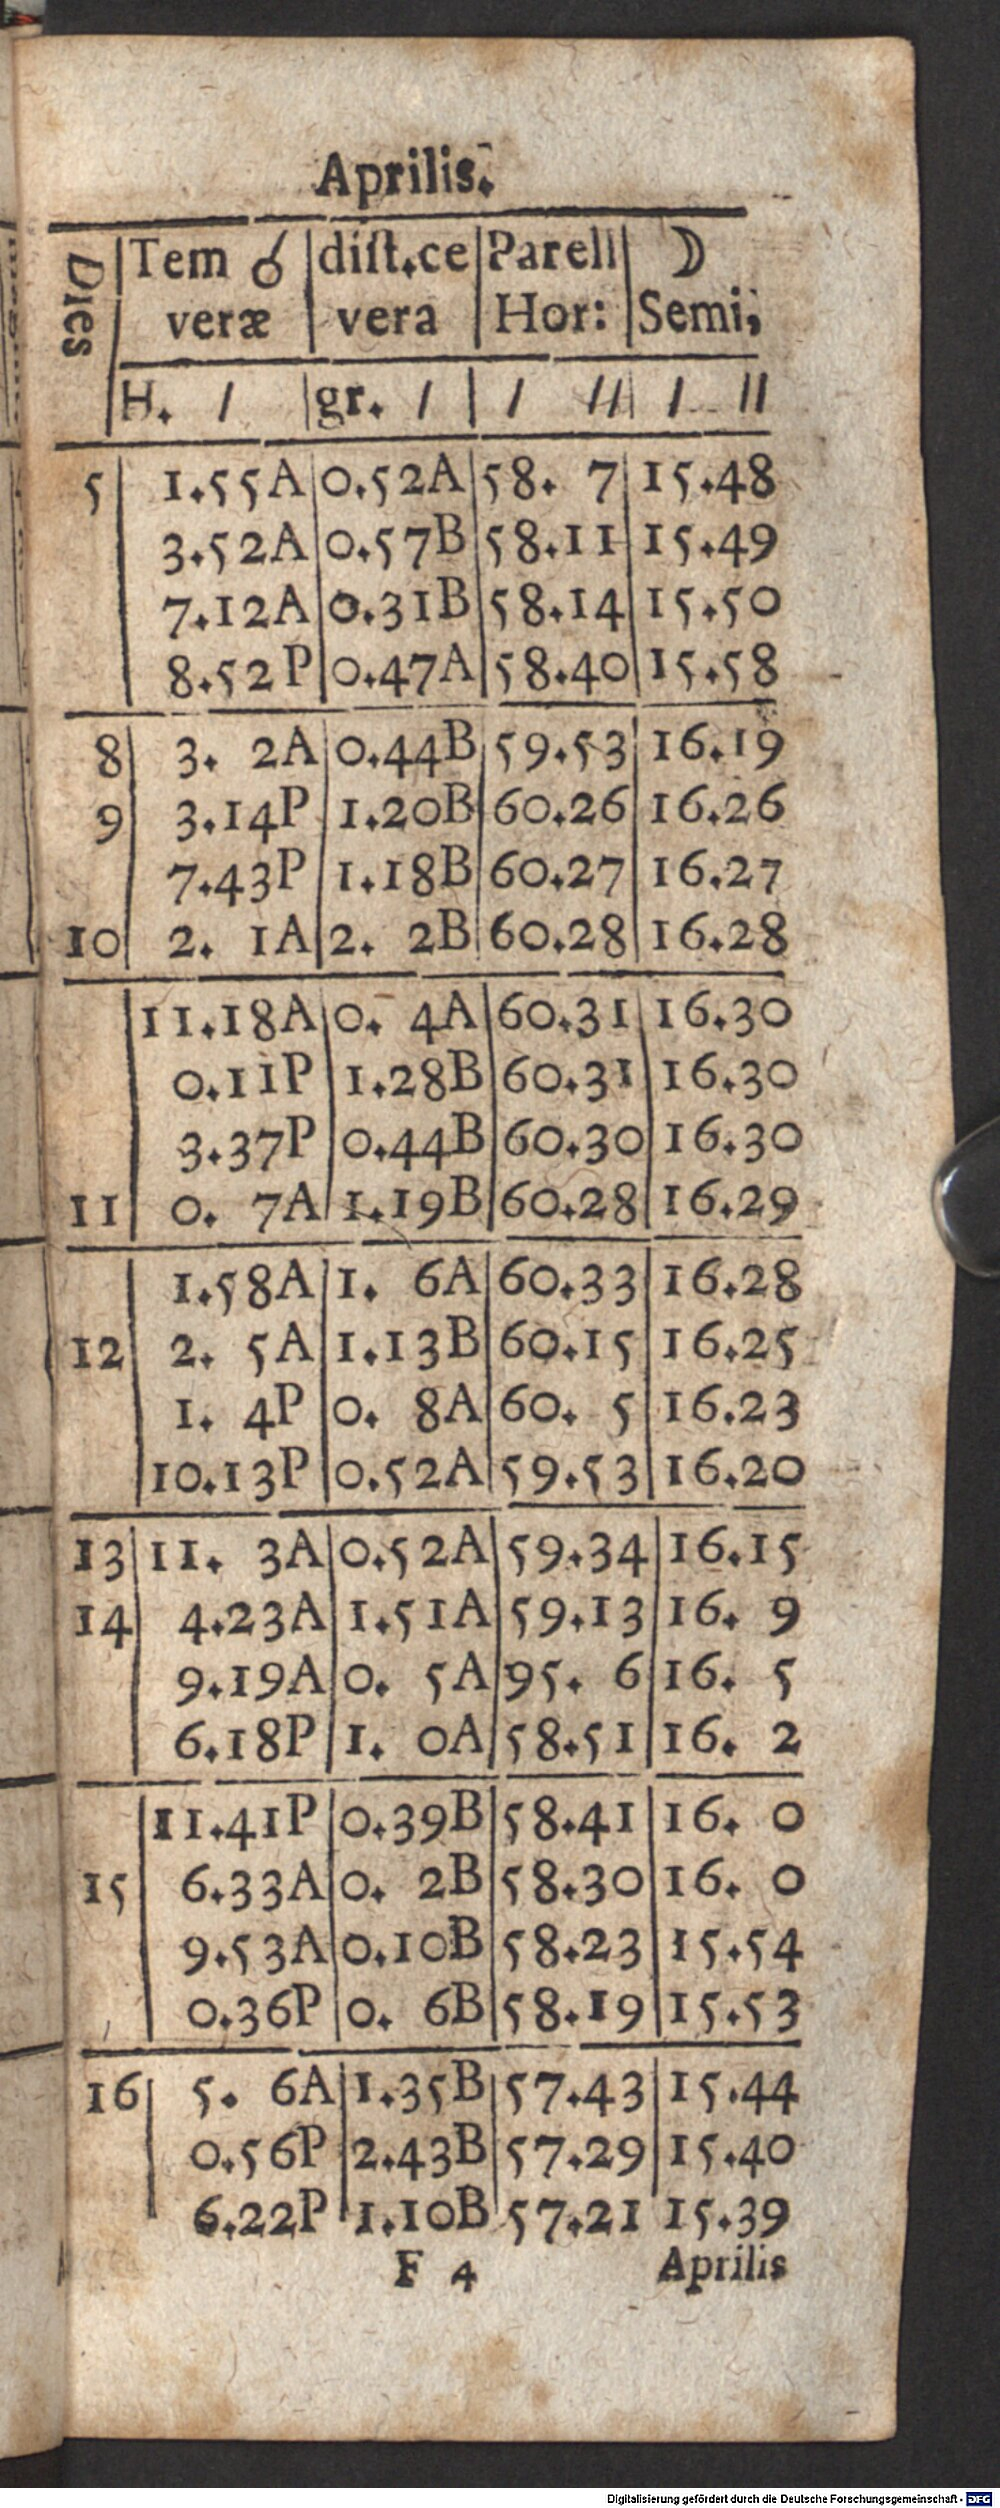 Aprilis.
Dies | Tem ☌ | diſt.ce | Parell | ☽
veræ | vera | Hor: | Semi;
H. / | gr. / | / // | / //
5 | 1.55A | 0.52A | 58. 7 | 15.48
3.52A | 0.57B | 58.11 | 15.49
7.12A | 0.31B | 58.14 | 15.50
8.52P | 0.47A | 58.40 | 15.58
8 | 3. 2A | 0.44B | 59.53 | 16.19
9 | 3.14P | 1.20B | 60.26 | 16.26
7.43P | 1.18B | 60.27 | 16.27
10 | 2. 1A | 2. 2B | 60.28 | 16.28
11.18A | 0. 4A | 60.31 | 16.30
0.11P | 1.28B | 60.31 | 16.30
3.37P | 0.44B | 60.30 | 16.30
11 | 0. 7A | 1.19B | 60.28 | 16.29
1.58A | 1. 6A | 60.33 | 16.28
12 | 2. 5A | 1.13B | 60.15 | 16.25
1. 4P | 0. 8A | 60. 5 | 16.23
10.13P | 0.52A | 59.53 | 16.20
13 | 11. 3A | 0.52A | 59.34 | 16.15
14 | 4.23A | 1.51A | 59.13 | 16. 9
9.19A | 0. 5A | 95. 6 | 16. 5
6.18P | 1. 0A | 58.51 | 16. 2
11.41P | 0.39B | 58.41 | 16. 0
15 | 6.33A | 0. 2B | 58.30 | 16. 0
9.53A | 0.10B | 58.23 | 15.54
0.36P | 0. 6B | 58.19 | 15.53
16 | 5. 6A | 1.35B | 57.43 | 15.44
0.56P | 2.43B | 57.29 | 15.40
6.22P | 1.10B | 57.21 | 15.39
F 4 Aprilis
Digitalisierung gefördert durch die Deutsche Forschungsgemeinschaft - DFG